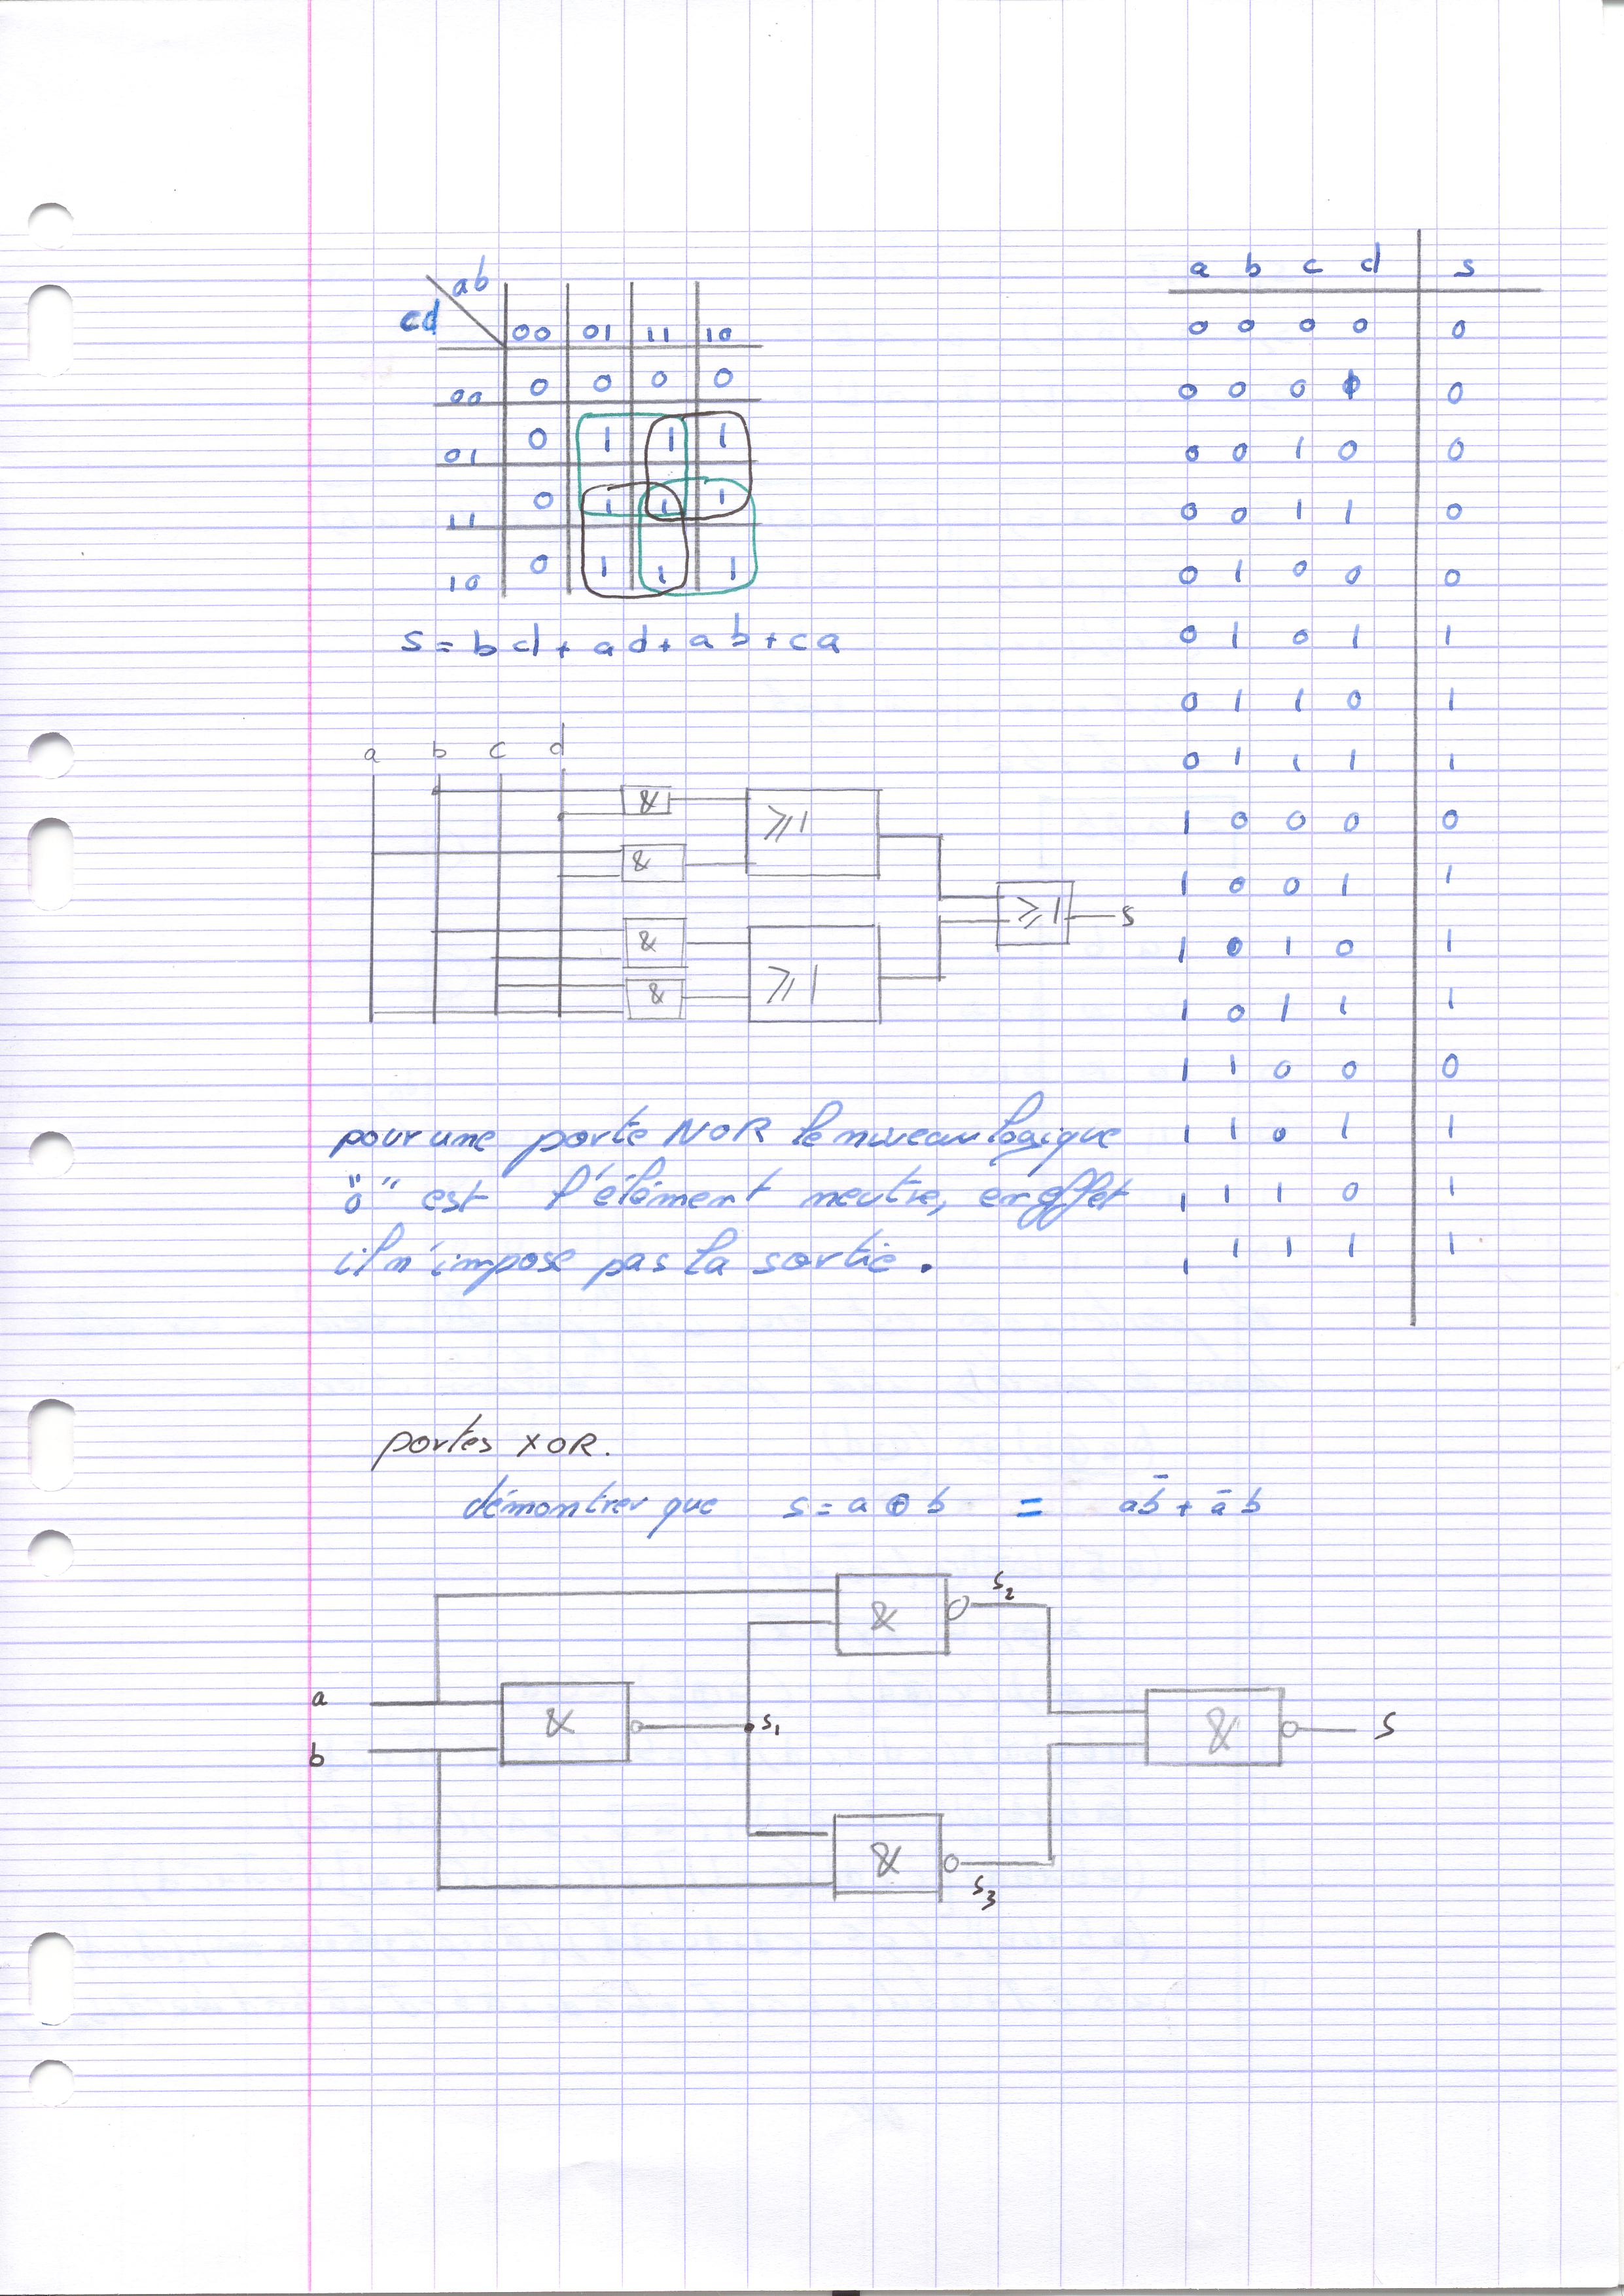 ab
cd
00 01 11 10
00 0 0 0 0
01 0 1 1 1
11 0 1 1 1
10 0 1 1 1
s = bd + ad + ab + ca
a b c d
& ≥1
&
≥1 s
&
& ≥1
pour une porte NOR le niveau logique
"0" est l'élément neutre, en effet
il n'impose pas la sortie.
a b c d s
0 0 0 0 0
0 0 0 1 0
0 0 1 0 0
0 0 1 1 0
0 1 0 0 0
0 1 0 1 1
0 1 1 0 1
0 1 1 1 1
1 0 0 0 0
1 0 0 1 1
1 0 1 0 1
1 0 1 1 1
1 1 0 0 0
1 1 0 1 1
1 1 1 0 1
1 1 1 1 1
portes XOR.
démontrer que s = a ⊕ b = ab̄ + āb
& s₂
a
& s₁ & s
b
& s₃